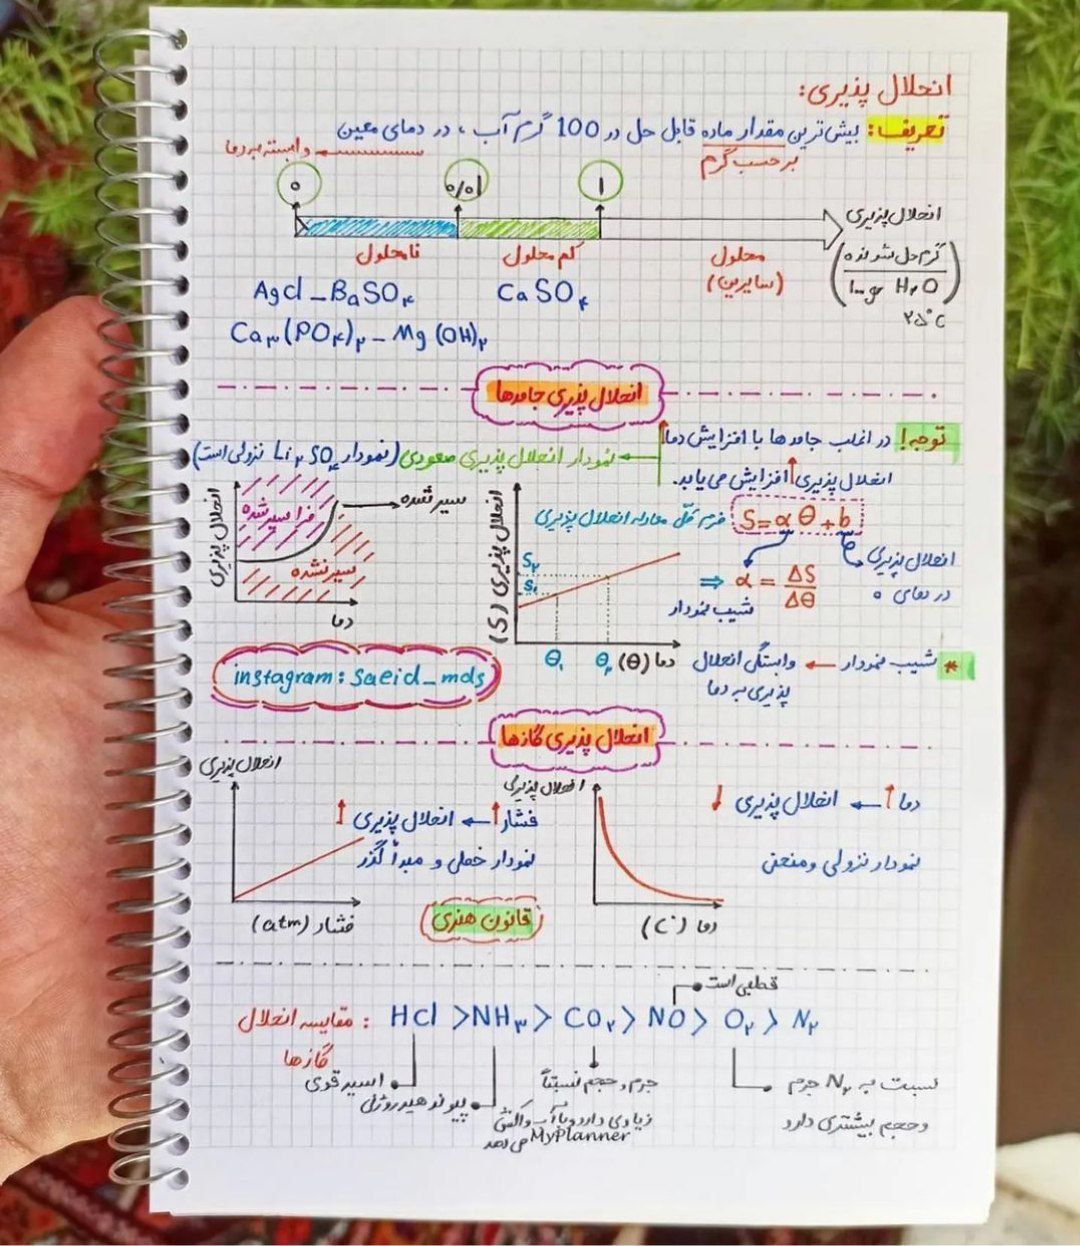 انحلال پذیری:
تعریف: بیش‌ترین مقدار ماده قابل حل در 100 گرم آب، در دمای معین
برحسب گرم
وابسته به دما
۰
۰/۰۱
۱
انحلال پذیری
(گرم حل شونده / ۱۰۰ gr H۲O)
۲۵°C
نامحلول
کم محلول
محلول
(سایرین)
AgCl _ BaSO۴
CaSO۴
Ca۳(PO۴)۲ _ Mg(OH)۲
انحلال پذیری جامدها
توجه! در اغلب جامدها با افزایش دما↑
انحلال پذیری↑ افزایش می یابد.
← نمودار انحلال پذیری صعودی (نمودار Li۲SO۴ نزولی است)
انحلال پذیری
فراسیرشده
سیرشده
سیرنشده
دما
انحلال پذیری (S)
فرم کلی معادله انحلال پذیری
S=αθ+b
انحلال پذیری
در دمای ۰
S۲
S۱
⇒ α = ΔS/Δθ
شیب نمودار
θ۱
θ۲
دما (θ)
* شیب نمودار ← وابستگی انحلال
پذیری به دما
instagram: saeid_mds
انحلال پذیری گازها
انحلال پذیری
فشار↑ ← انحلال پذیری ↑
نمودار خطی و مبدأ گذر
فشار (atm)
قانون هنری
انحلال پذیری
دما ↑ ← انحلال پذیری ↓
نمودار نزولی و منحنی
دما (°C)
قطبی است
مقایسه انحلال : HCl > NH۳ > CO۲ > NO > O۲ > N۲
گازها
اسید قوی
پیوند هیدروژنی
جرم و حجم نسبتاً
زیادی دارد و با آب واکنش
می دهد
MyPlanner
نسبت به N۲ جرم
و حجم بیشتری دارد